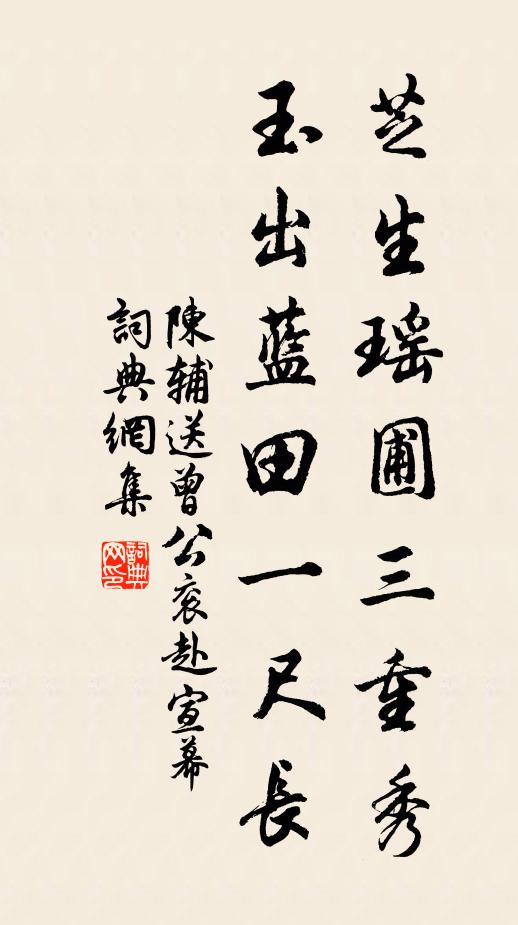 芝生瑶圃三重秀
玉出藍田一尺長
陳輔送曾公衮赴宣幕
詞典網集
詞典网印